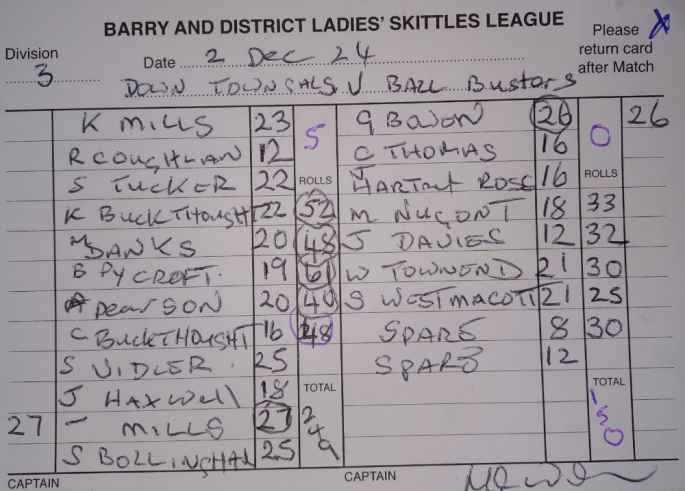 BARRY AND DISTRICT LADIES' SKITTLES LEAGUE
Division 3
Date 2 Dec 24
Please return card after Match X
DOWN TOWN GALS V BALL Bustors
K MILLS 23 5
R COUGHLAN 12
S TUCKER 22 ROLLS
K BUCKTHOUGHT 22 52
M DANKS 20 48
B PYCROFT. 19 61
A PearSON 20 40
C BUCKTHOUGHT 16 48
S VIDLER. 25
J HAXWell 18 TOTAL
27 - MILLS 27 249
S BOLLINGHAM 25
CAPTAIN
G BOWON 26 26
C THOMAS 16 0
J HARTNET ROSE 16 ROLLS
M NUGONT 18 33
J DAVIES 12 32
W TOWNEND 21 30
S WESTMACOTT 21 25
SPARE 8 30
SPARE 12
TOTAL
150
CAPTAIN